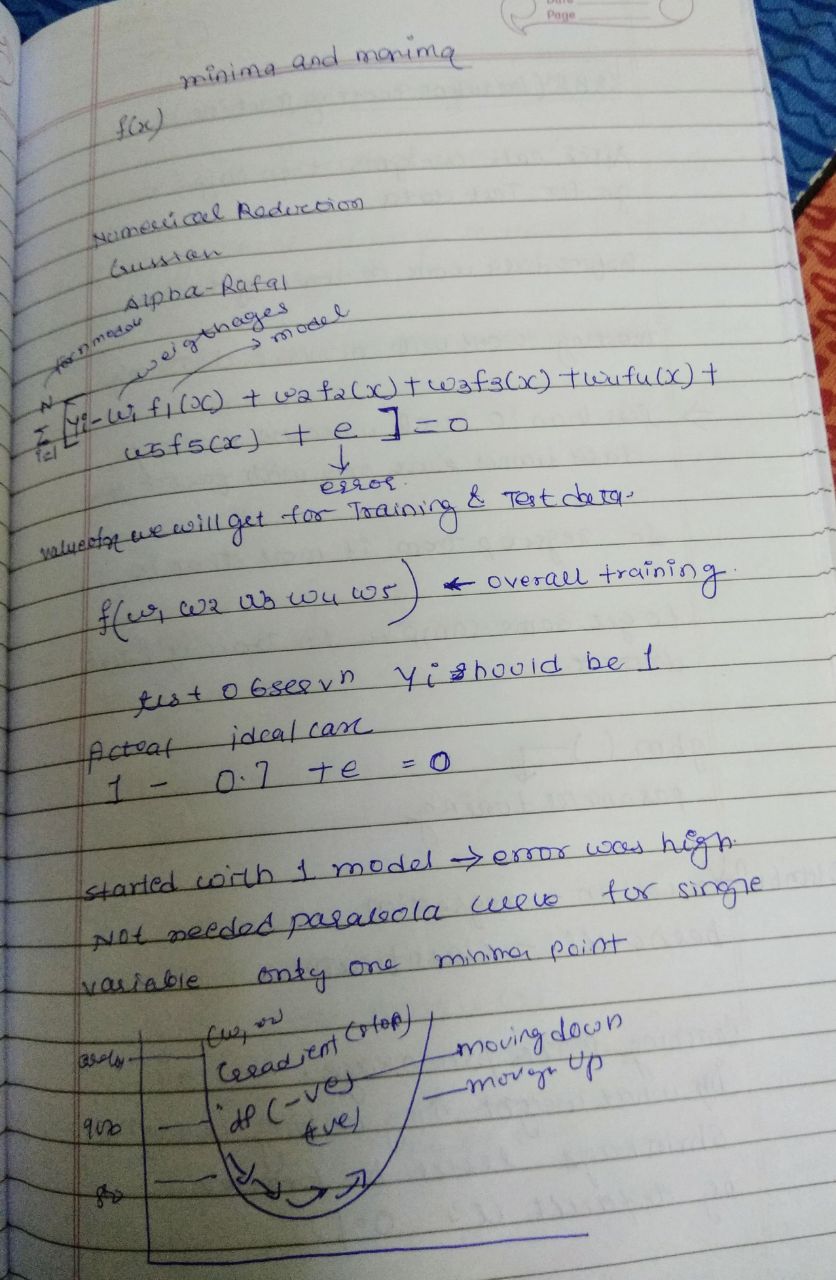 Page
minima and maxima
f(x)
Numerical Reduction
Gussian
Alpha-Rafal
for n model
weigthages
model
N
Σ [yi - w1 f1(x) + w2 f2(x) + w3 f3(x) + w4 f4(x) +
i=1
w5 f5(x) + e ] = 0
error
we will get for Training & Test data.
f(w1 w2 w3 w4 w5) ← overall training.
test observn yi should be 1
Actual ideal case
1 - 0.7 + e = 0
started with 1 model → error was high
Not needed parabola curve for single
variable only one minima point
Gradient (stop)
moving down
df (-ve)
+ve)
900